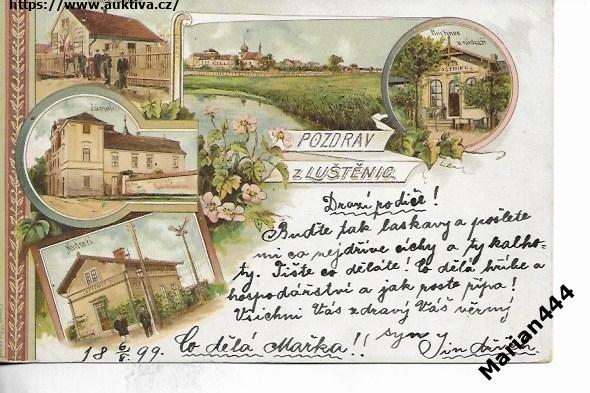 https://www.auktiva.cz/
Hostinec
u nádraží
HOSTINEC
Zámek
POZDRAV
z LUŠTĚNIC
Nádraží
Drazí rodiče!
Buďte tak laskavy a pošlete
mi co nejdříve cíchy a ty kalho-
ty. Pište co děláte! Co dělá hříbe a
hospodářství a jak roste řípa!
Všichni Vás zdravý Váš věrný
syn Jindřich
18 6/8. 99. Co dělá Mařka!!
Marian444